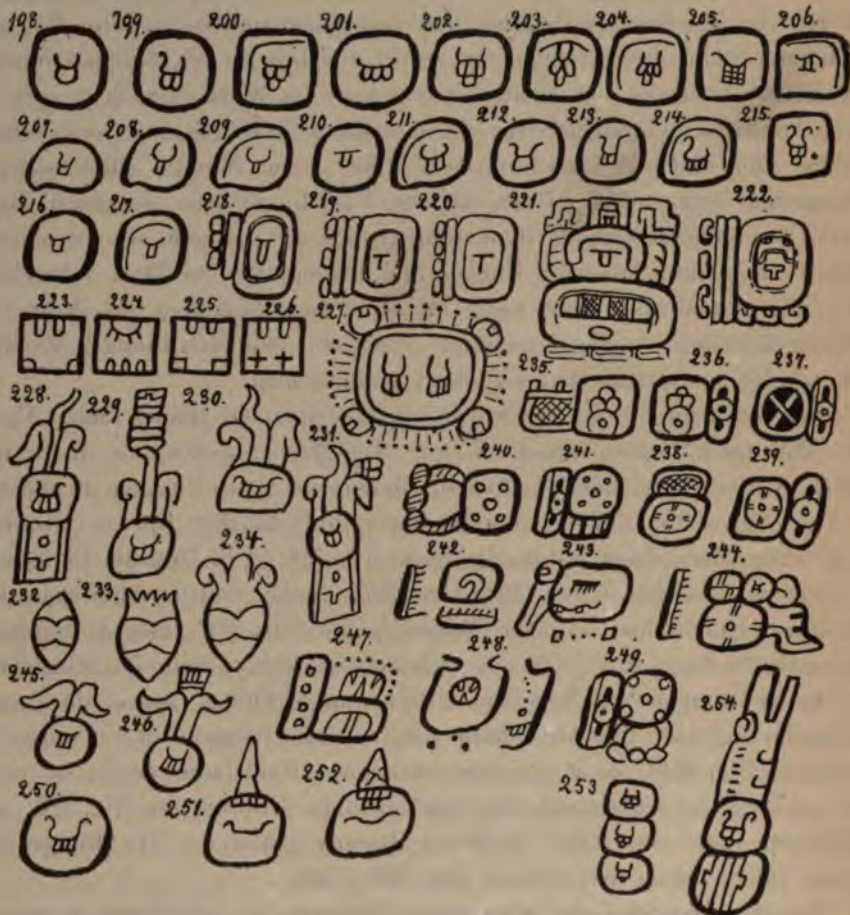 198. 199. 200. 201. 202. 203. 204. 205. 206.
207. 208. 209 210. 211. 212. 213. 214. 215.
216. 217. 218. 219. 220. 221. 222.
223. 224. 225. 226. 227.
228. 229. 230. 231. 235. 236. 237.
240. 241. 238. 239.
232. 233. 234. 242. 243. 244.
245. 246. 247. 248. 249. 254.
250. 251. 252. 253